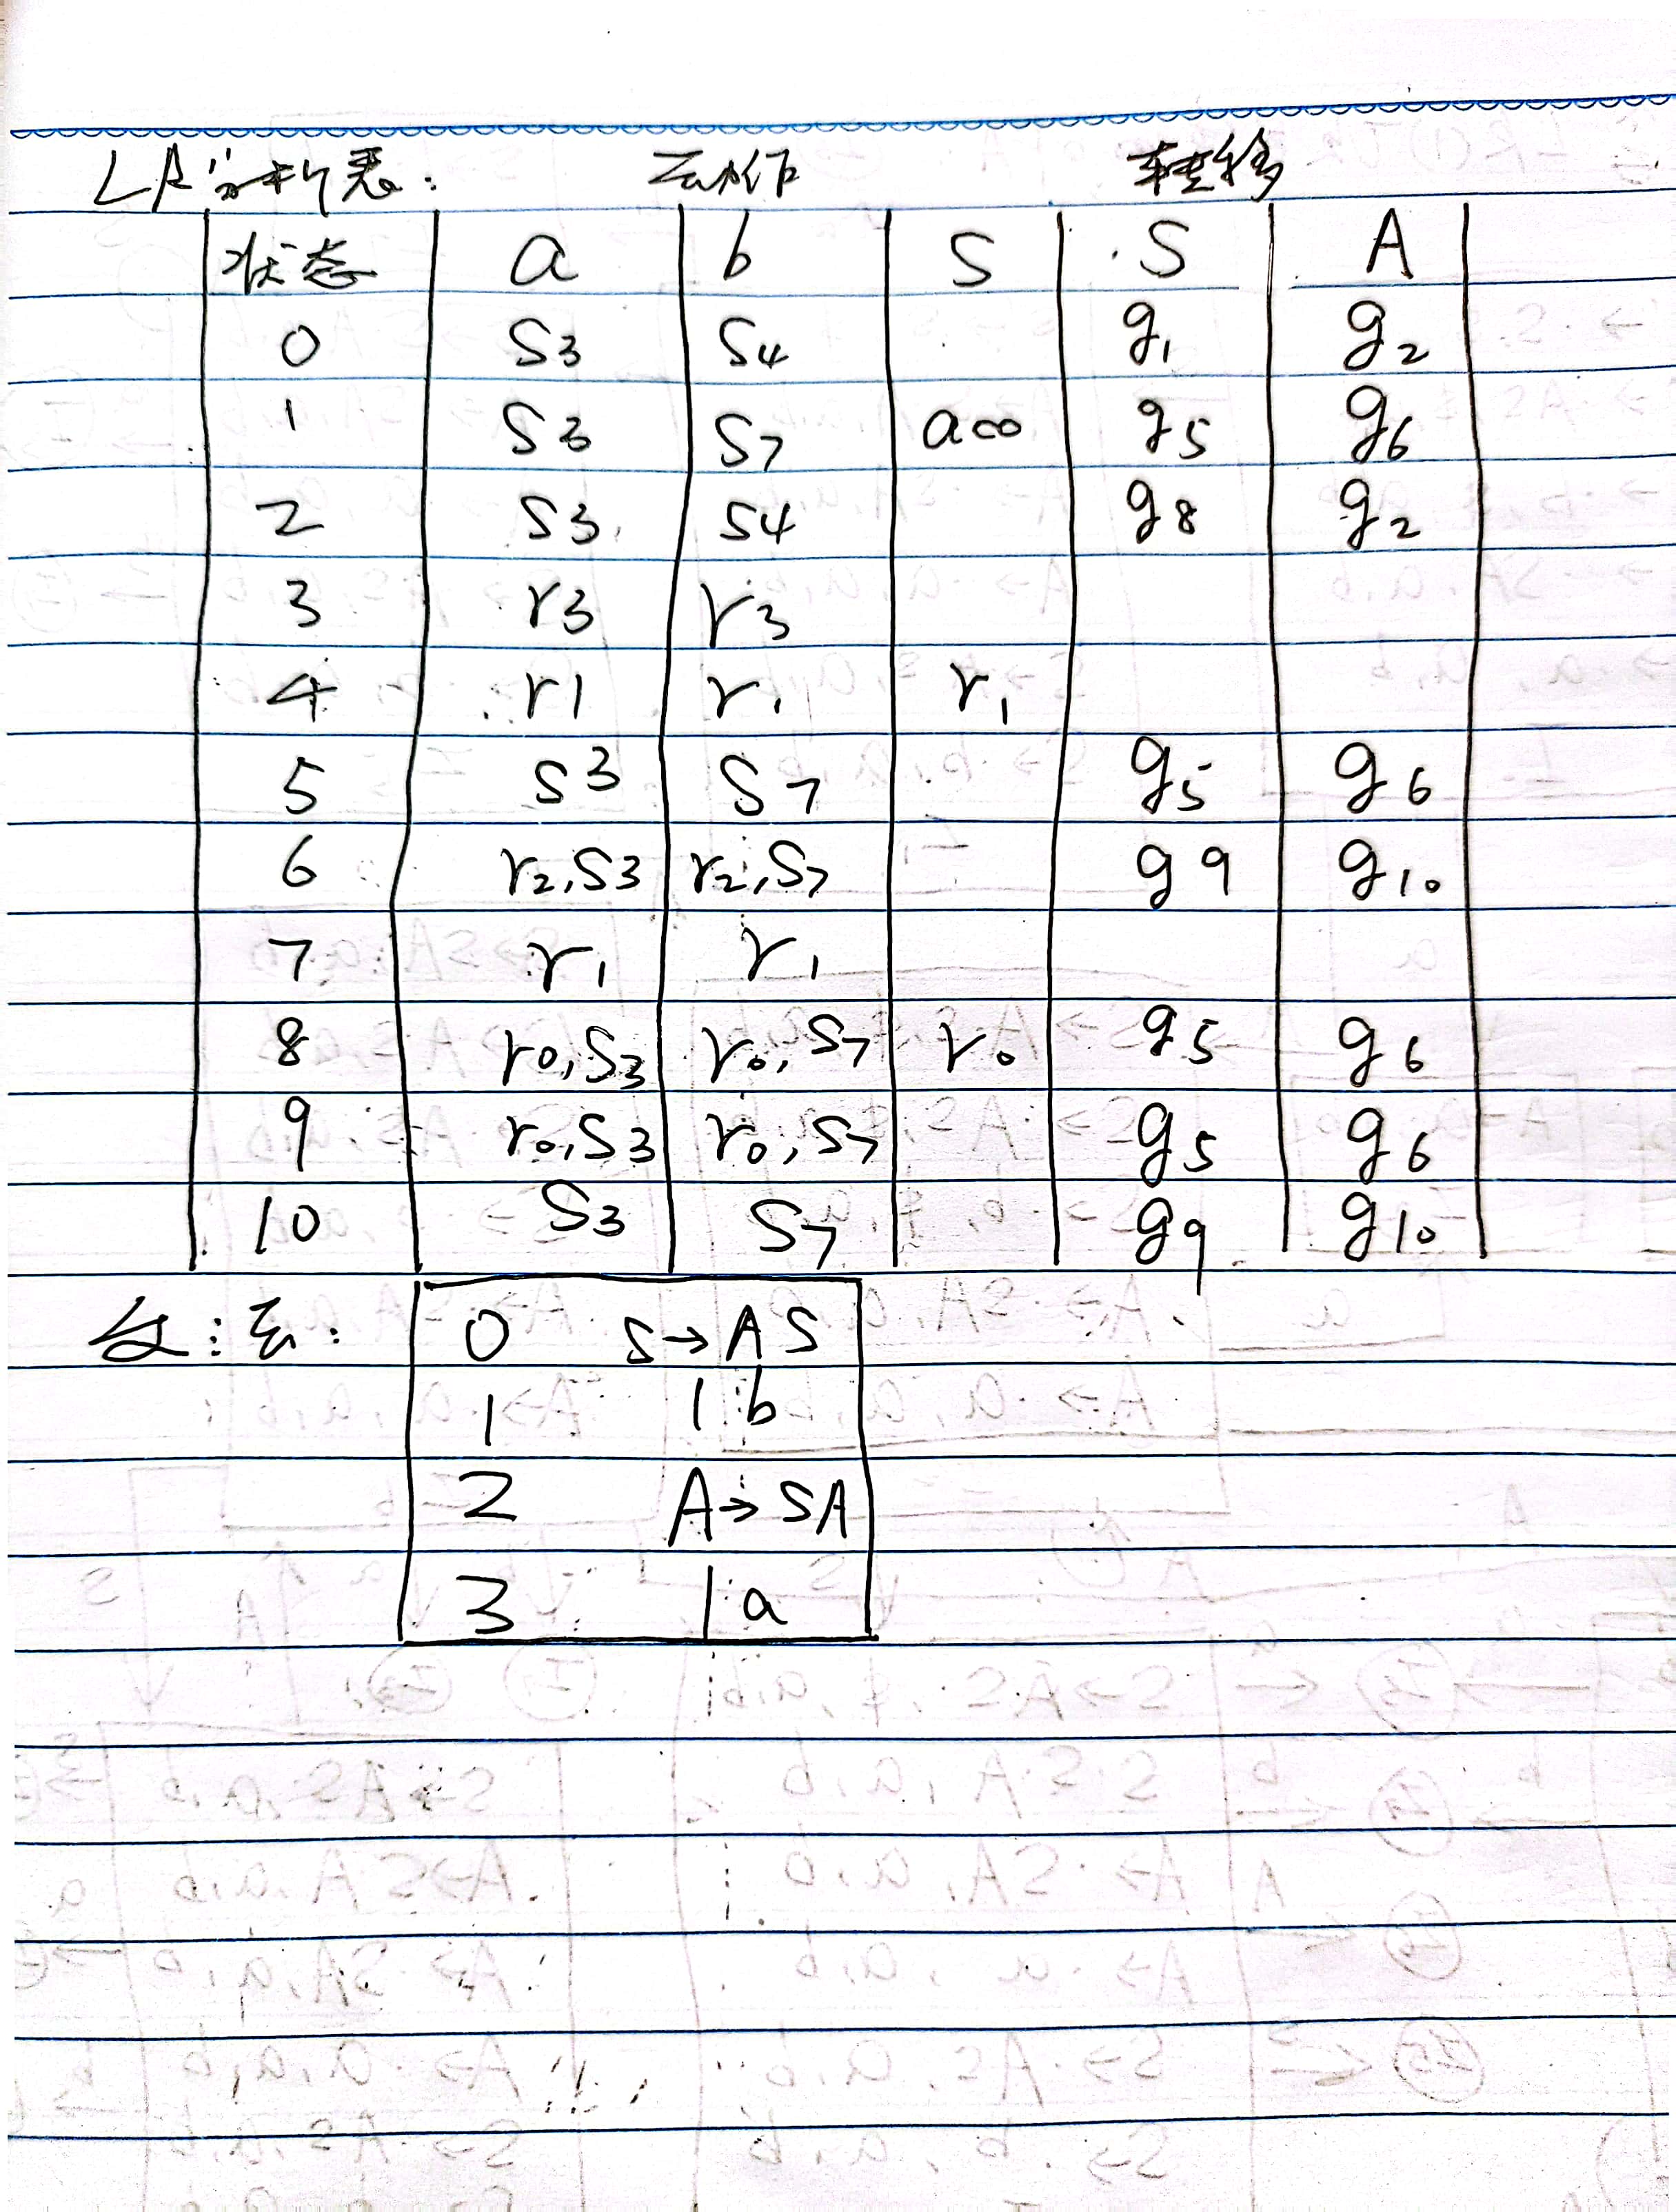 LR分析表： 动作 转移
状态 a b S S A
0 S3 S4 g1 g2
1 S3 S7 acc g5 g6
2 S3 S4 g8 g2
3 r3 r3
4 r1 r1 r1
5 S3 S7 g5 g6
6 r2,S3 r2,S7 g9 g10
7 r1 r1
8 r0,S3 r0,S7 r0 g5 g6
9 r0,S3 r0,S7 g5 g6
10 S3 S7 g9 g10
0 S→AS
1 |b
2 A→SA
3 |a